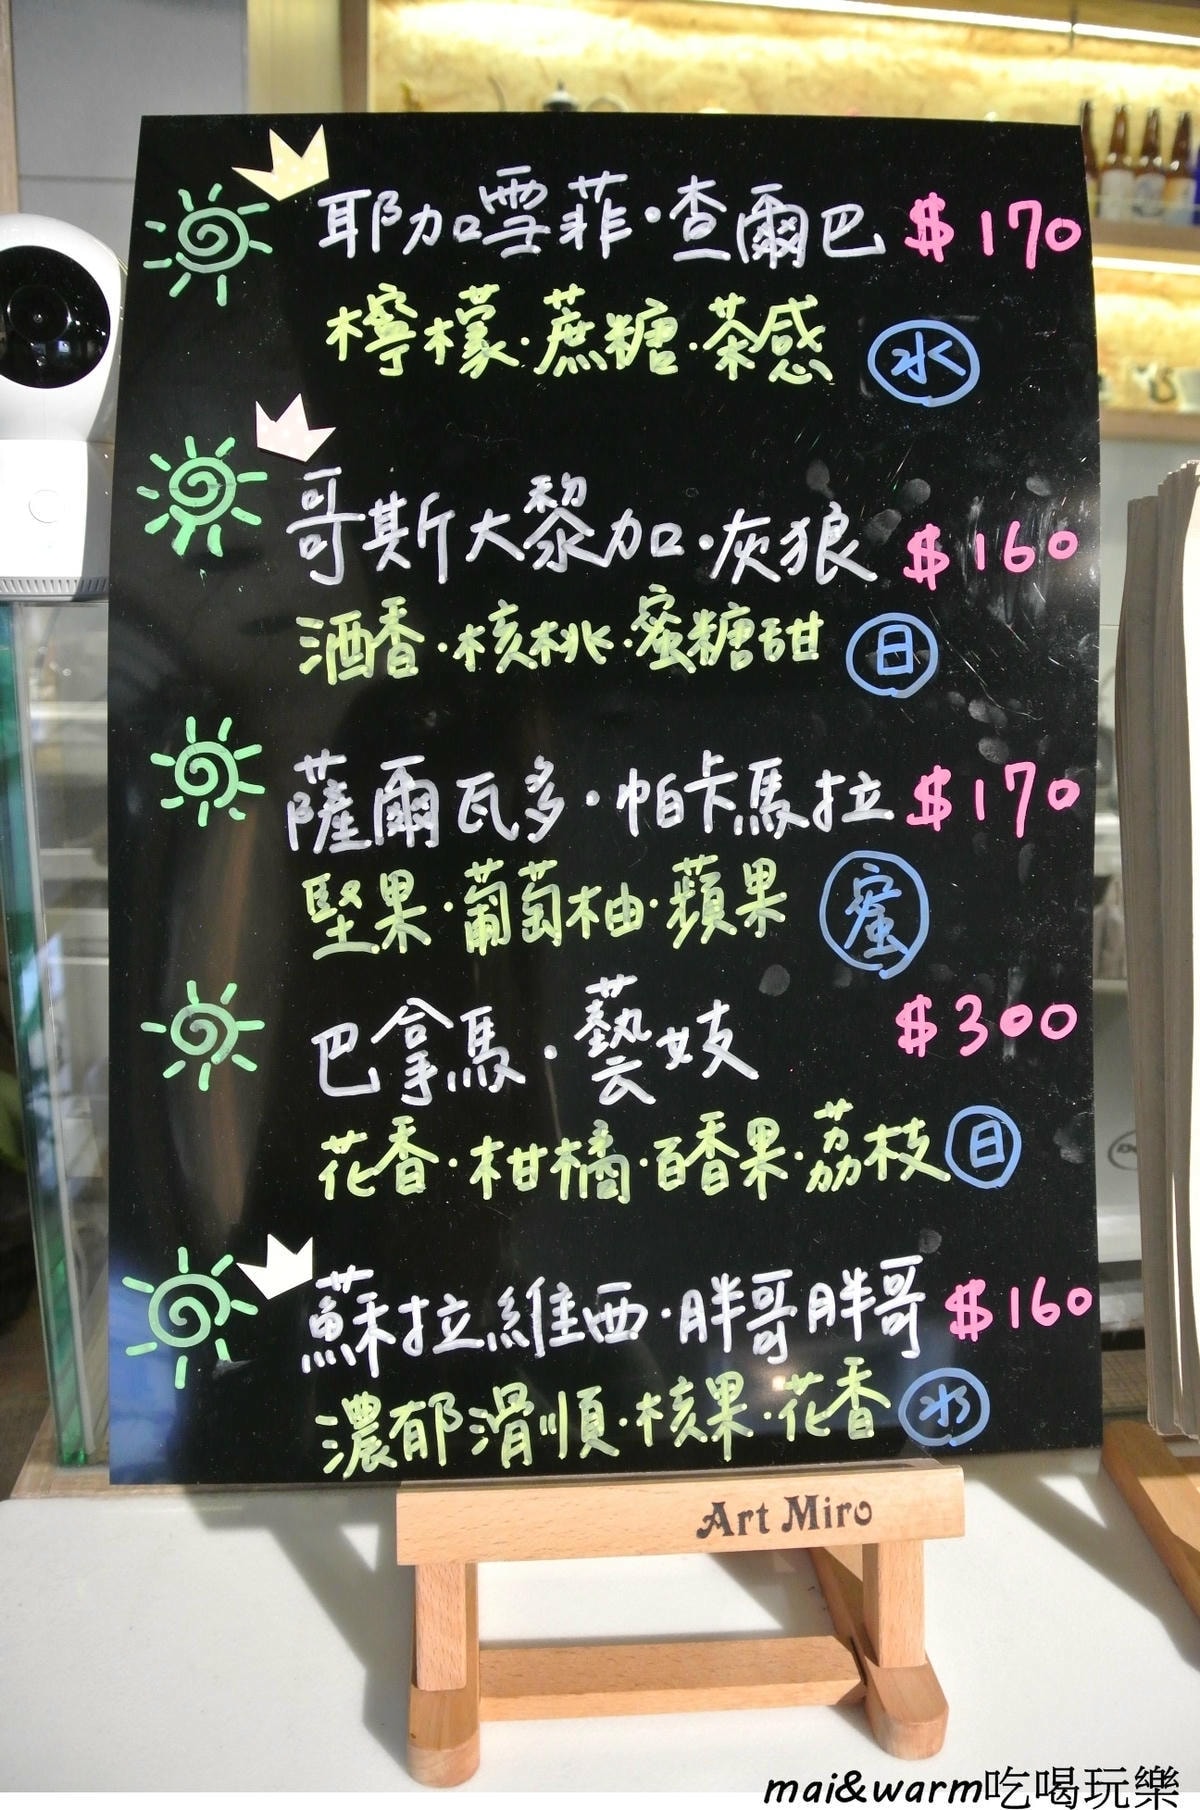 耶加雪菲·查爾巴 $170
檸檬·蔗糖·茶感 水
哥斯大黎加·灰狼 $160
酒香·核桃·蜜糖甜 日
薩爾瓦多·帕卡馬拉 $170
堅果·葡萄柚·蘋果 蜜
巴拿馬·藝妓 $300
花香·柑橘·百香果·荔枝 日
蘇拉維西·胖哥胖哥 $160
濃郁滑順·核果·花香 水
Art Miro
mai&warm吃喝玩樂